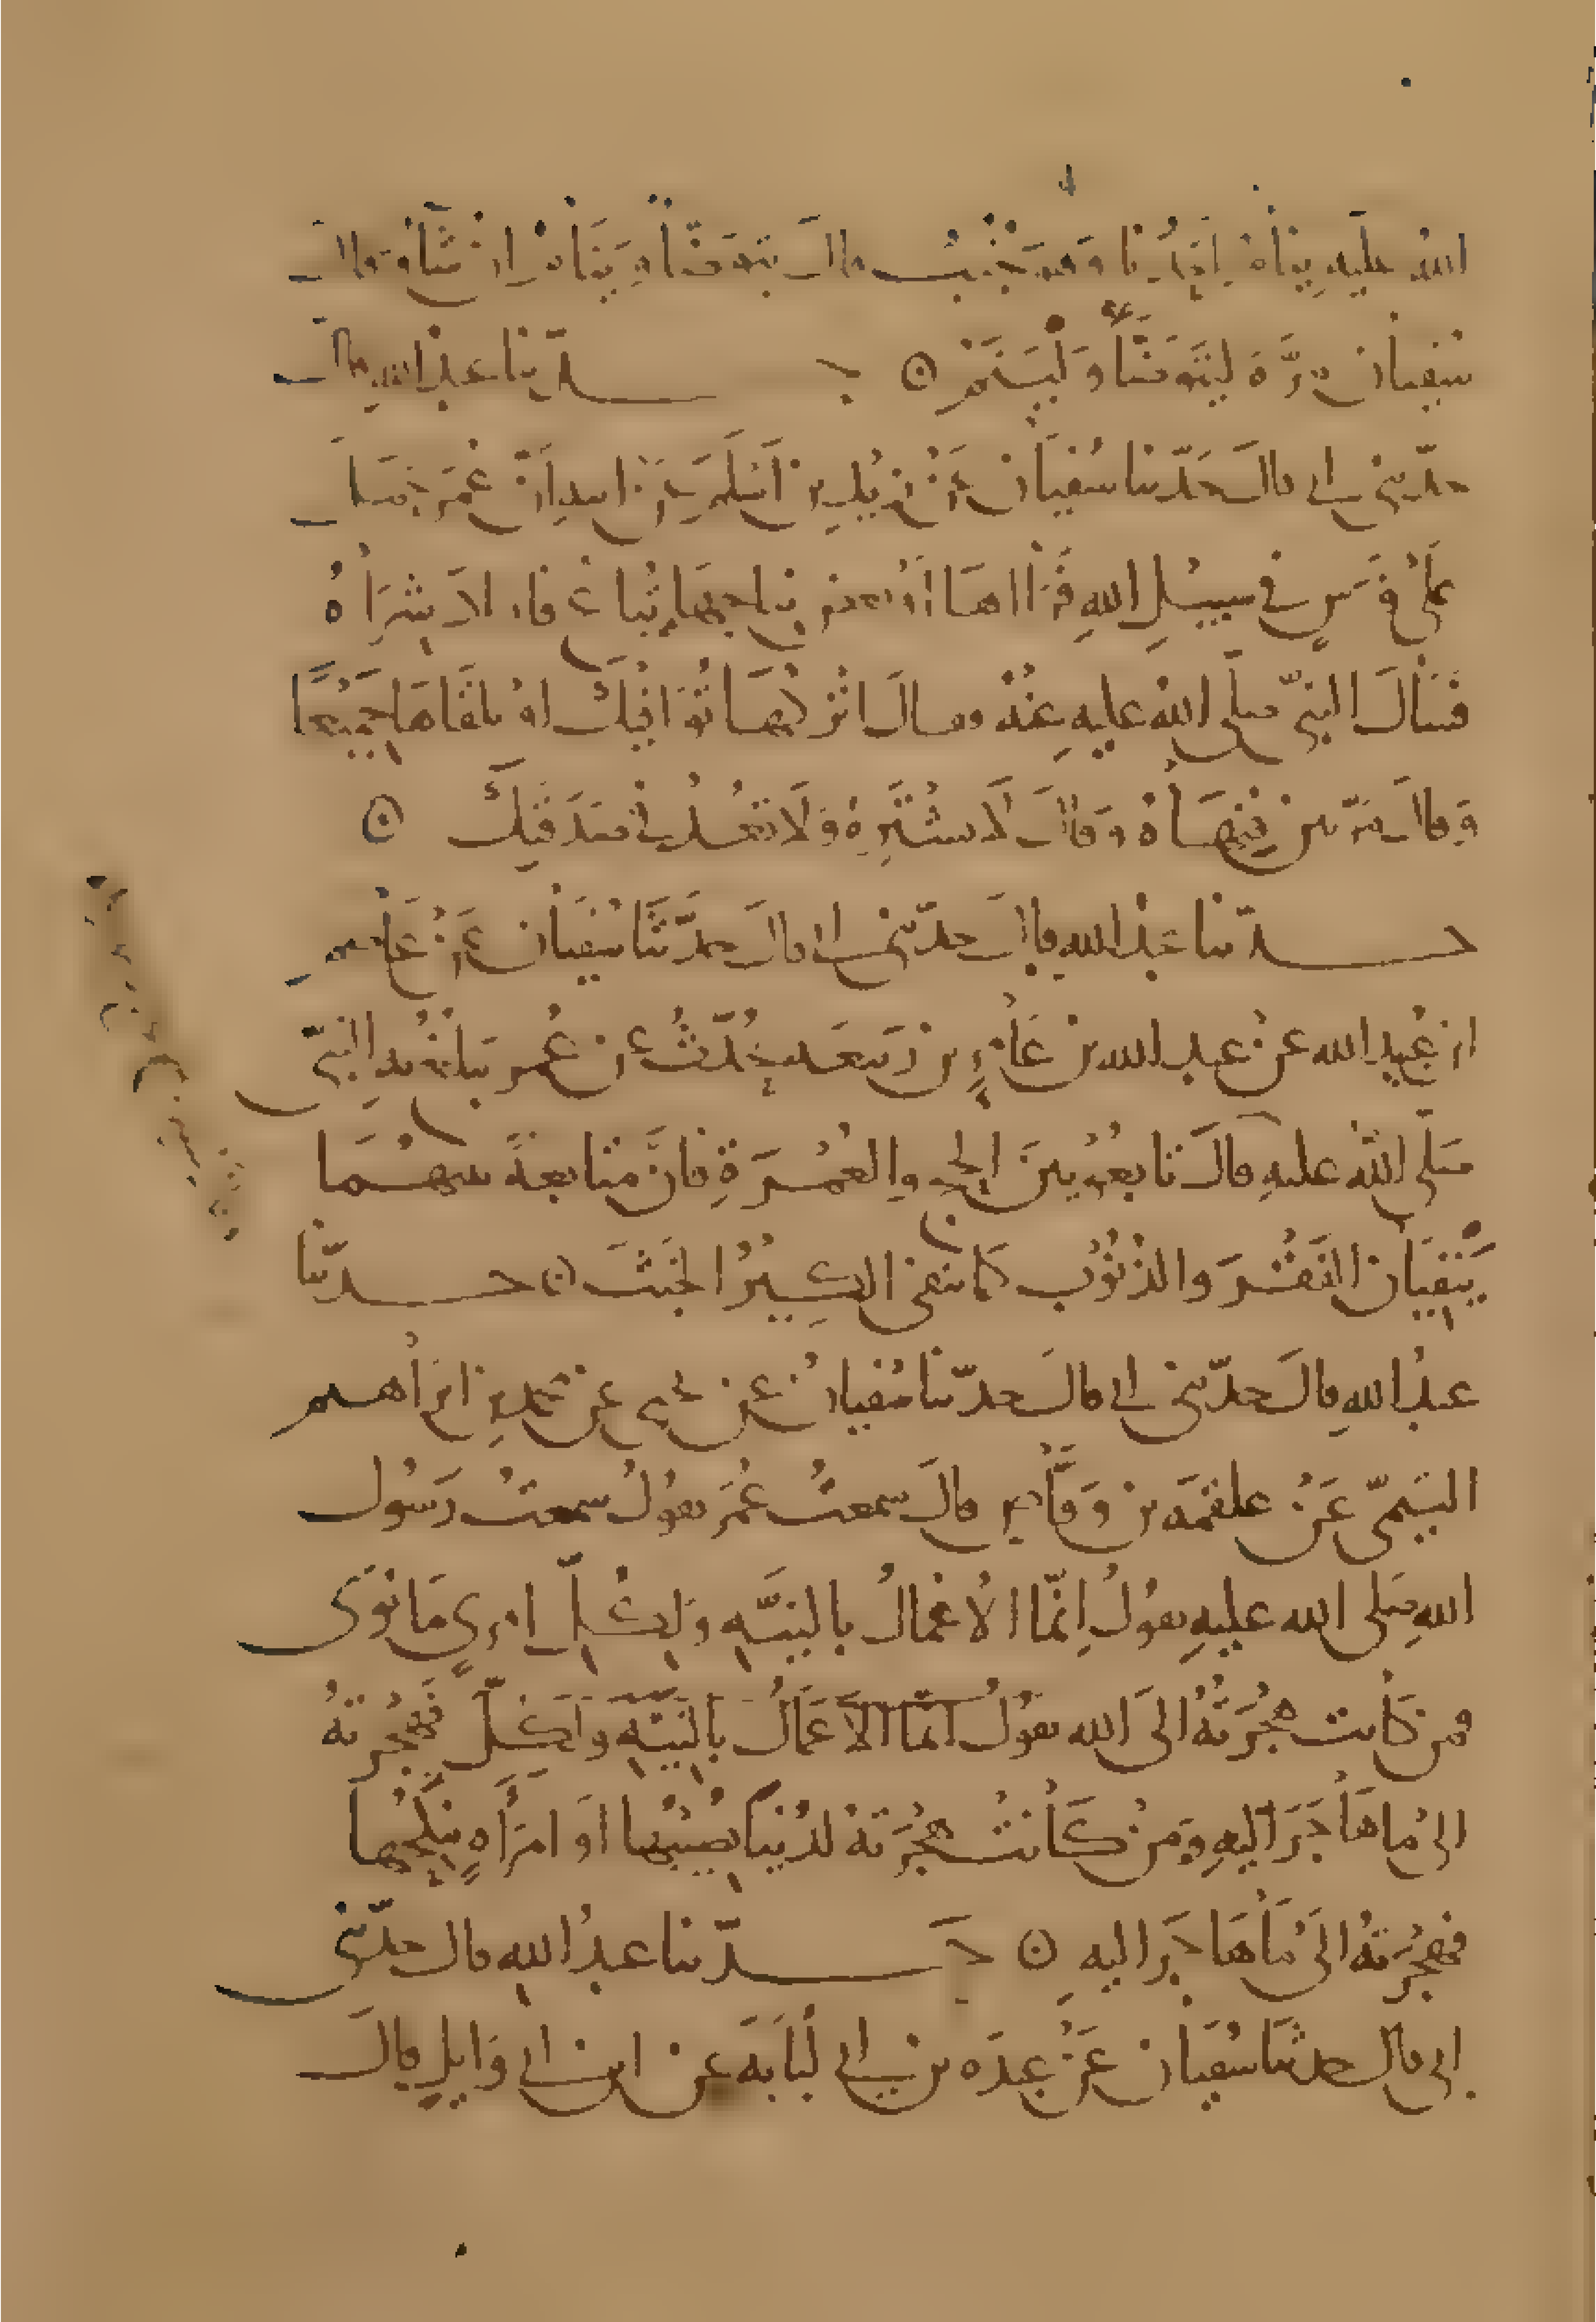 الله عليه ينام احدنا وهو جنب قال يتوضأ وينام ان شاء وقال
سفيان مرة ليتوضأ ولينم ۞ حدثنا عبد الله قال
حدثني ابي قال حدثنا سفيان عن زيد بن اسلم عن ابيه ان عمر حمل
على فرس في سبيل الله فراها او بعض نتاجها يباع فاراد شراه
فسأل النبي صلى الله عليه عنه فقال اتركها توافيك او تلقاها جميعا
وقال مرتين فنهاه وقال لا تشتره ولا تعد في صدقتك ۞
حدثنا عبد الله قال حدثني ابي قال حدثنا سفيان عن عاصم
ابن عبيد الله عن عبد الله بن عامر بن ربيعة يحدث عن عمر يبلغ به النبي
صلى الله عليه قال تابعوا بين الحج والعمرة فان متابعة بينهما
ينفيان الفقر والذنوب كما ينفي الكير الخبث ۞ حدثنا
عبد الله قال حدثني ابي قال حدثنا سفيان عن يحيى عن محمد بن ابراهيم
التيمي عن علقمه بن وقاص قال سمعت عمر يقول سمعت رسول
الله صلى الله عليه يقول انما الاعمال بالنيه ولكل امرئ ما نوى
فمن كانت هجرته الى الله يقول انما الاعمال بالنيه ولكل فهجرته
الى ما هاجر اليه ومن كانت هجرته لدنيا يصيبها او امراه ينكحها
فهجرته الى ما هاجر اليه ۞ حدثنا عبد الله قال حدثني
ابي قال حدثنا سفيان عن عبده بن ابي لبابه عن ابن ابي وايل قال